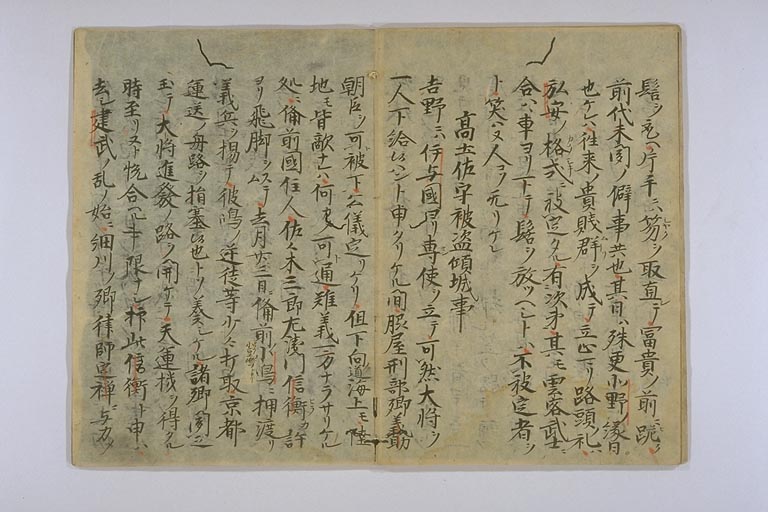 髻ヲ本ヘ片手ニ笏ヲ取直シテ富貴ノ前ニ跪ク
前代未聞ノ僻事共也其日ハ殊更小野ノ縁日
也ケレハ往来ノ貴賤群ヲ成テ立止リ路頭ノ礼ハ
弘安ノ格式ニ被定タル有次第其モ雲客武士ニ
合ハ事ヨリ下テ髻ヲ放ツヘシトハ不被定者ヲ
ト笑ハヌ人コソ无リケレ
高土佐守被盗傾城事
吉野ニハ伊与國ヨリ専使ヲ立テ可然大将ヲ
一人下給ヘシト申タリケル間脇屋刑部卿義助
朝臣ヲ可被下公儀定リケリ但下向道海上モ陸
地モ皆敵ナレハ何ニ可通難義一方ナラサリケル
処ニ備前國住人佐々木三郎左衛門信衡カ許
ヨリ飛脚ヲステ去月廿三日備前小嶋ニ押渡リ
義兵ヲ揚テ彼嶋ノ逆徒等少々打取京都
運送ノ舟路ヲ指塞候也トソ奏シケル諸卿聞之
玉テ大将進發ノ路ヲ開ケテ天運機ヲ得タル
時至リヌト悦合ヘル事ノ限ナシ抑此信衡ト申ハ
去シ建武ノ乱ノ始ニ細川ノ卿律師定禅ニ与力メ